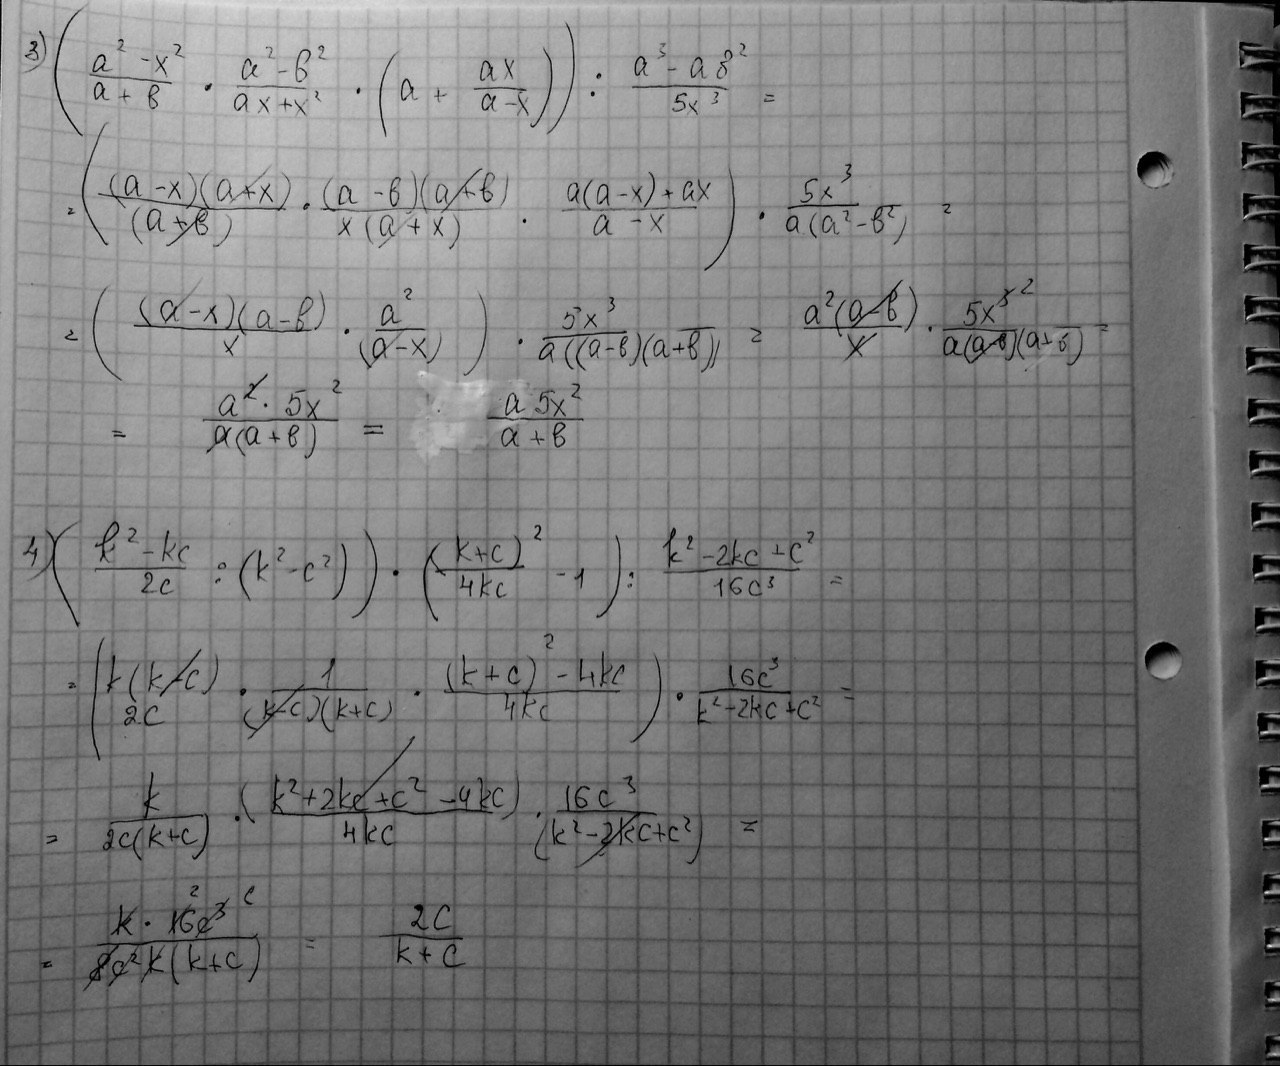 3) ( (a² - x²)/(a + в) · (a² - в²)/(ax + x²) · (a + ax/(a - x)) ) : (a³ - aв²)/(5x³) =
= ( (a - x)(a + x)/(a + в) · (a - в)(a + в)/(x(a + x)) · (a(a - x) + ax)/(a - x) ) · 5x³/(a(a² - в²)) =
= ( (a - x)(a - в)/x · a²/(a - x) ) · 5x³/(a((a - в)(a + в)) = a²(a - в)/x · 5x³ ²/(a(a - в)(a + в)) =
= a² · 5x²/(a(a + в)) = a 5x²/(a + в)
4) ( (k² - kc)/(2c) : (k² - c²) ) · ( (k + c)²/(4kc) - 1 ) : (k² - 2kc + c²)/(16c³) =
= ( k(k - c)/(2c) · 1/((k - c)(k + c)) · ((k + c)² - 4kc)/(4kc) ) · 16c³/(k² - 2kc + c²) =
= k/(2c(k + c)) · (k² + 2kc + c² - 4kc)/(4kc) · 16c³/(k² - 2kc + c²) =
= k · 16 ² c³ c/(8c² k(k + c)) = 2c/(k + c)